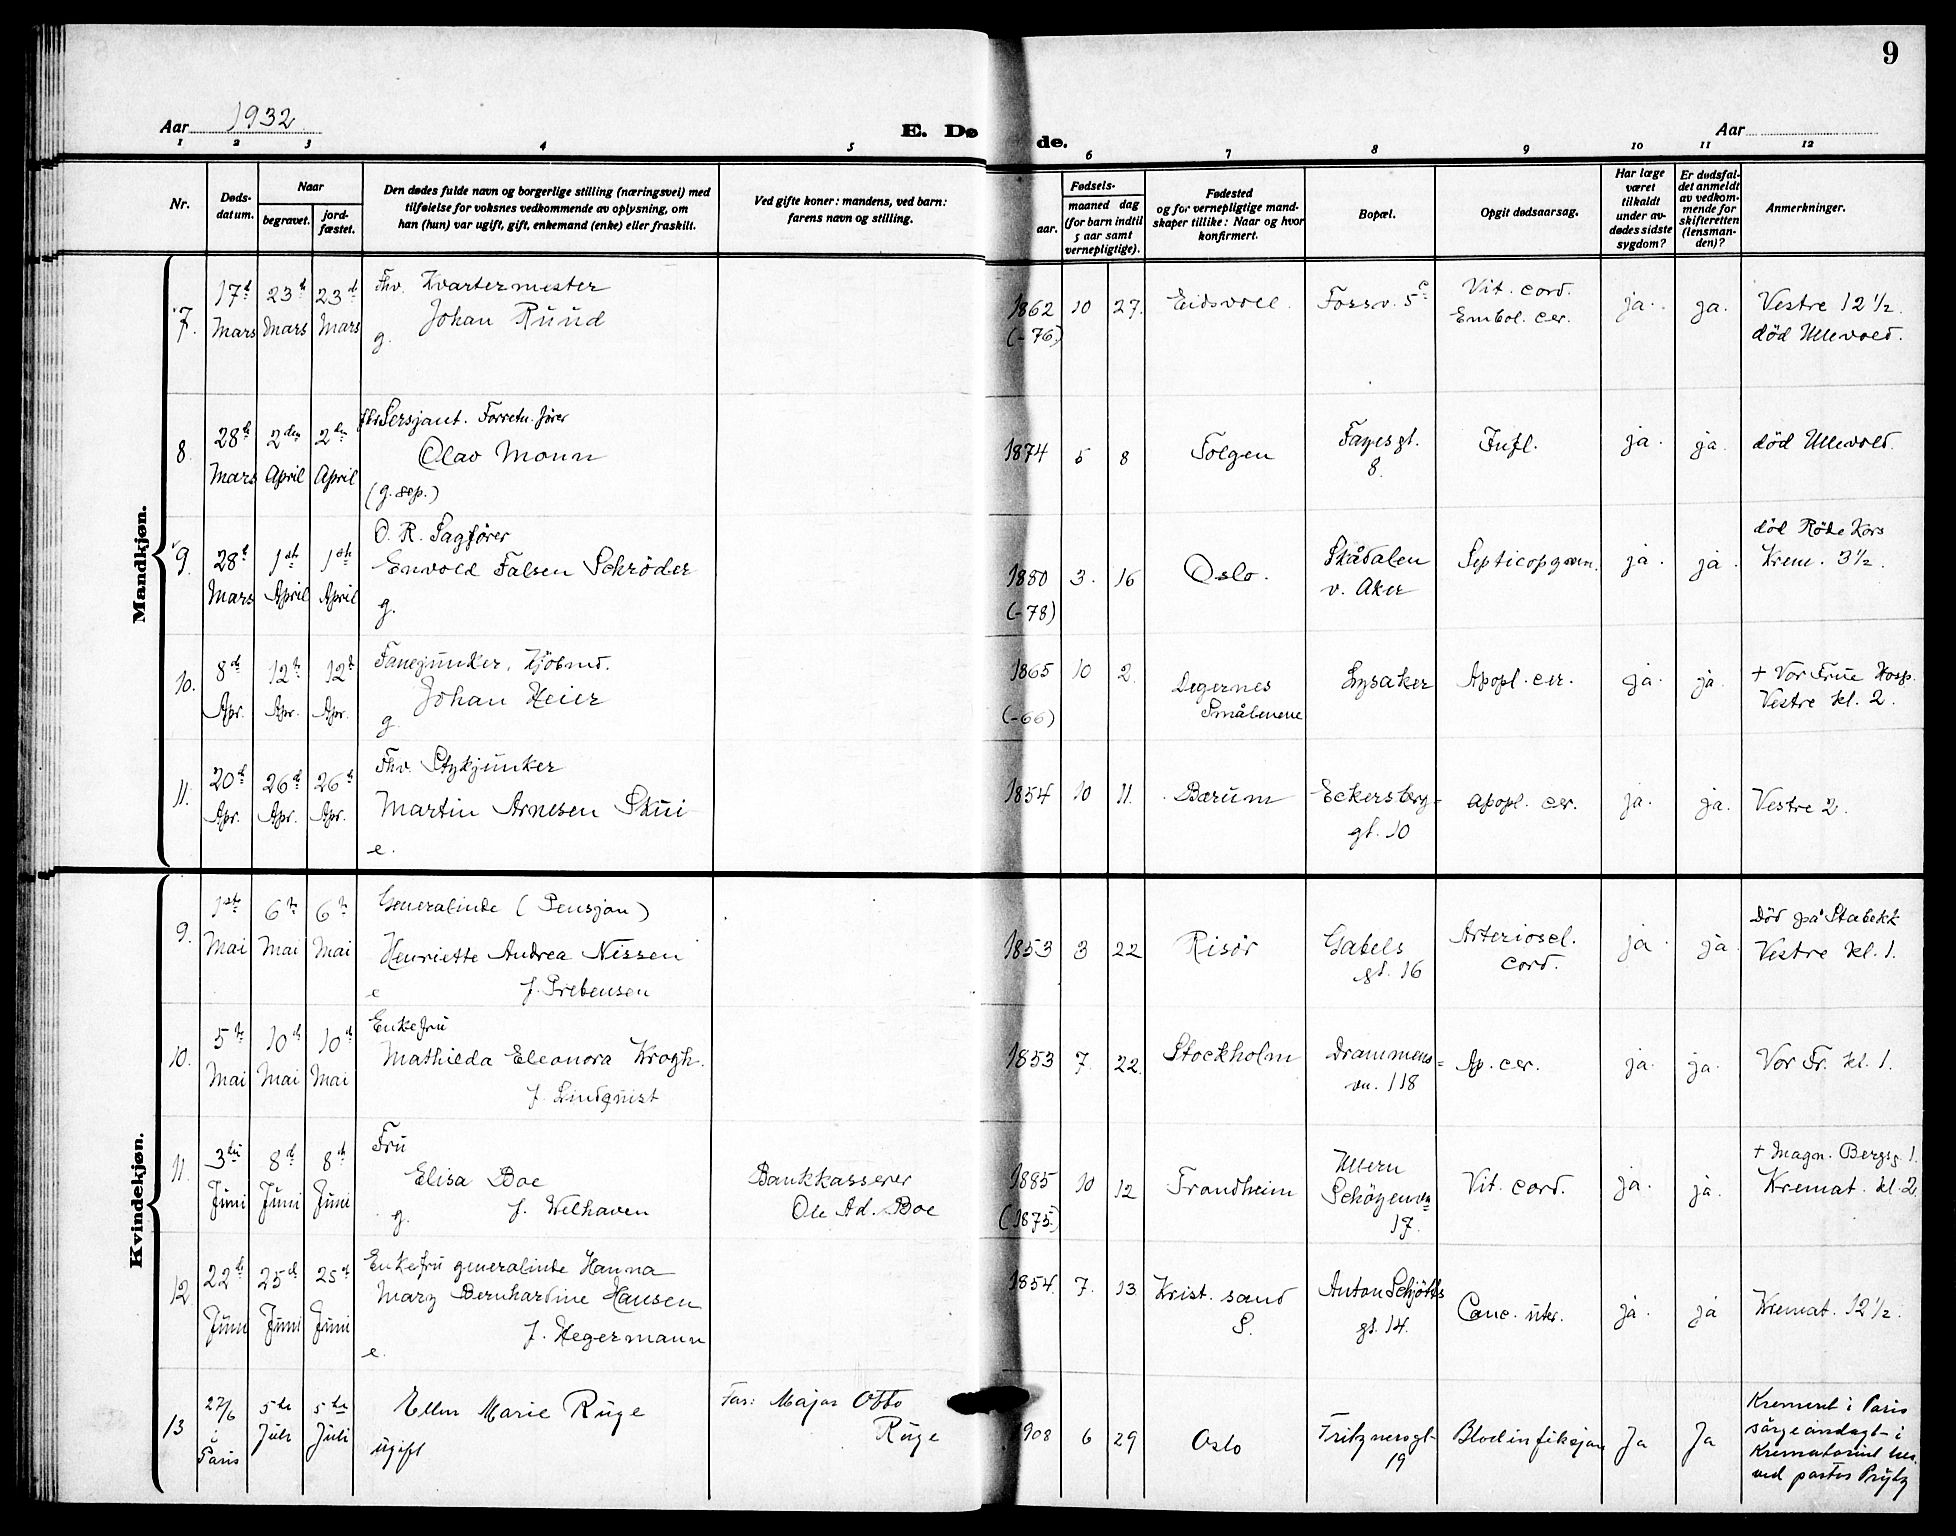 9
Aar 1932
E. Dø de.
Aar
1 2 3 4 5 6 7 8 9 10 11 12
Nr.
Døds-
datum.
Naar
begravet.
jord-
fæstet.
Den dødes fulde navn og borgerlige stilling (næringsvei) med
tilføielse for voksnes vedkommende av oplysning, om
han (hun) var ugift, gift, enkemand (enke) eller fraskilt.
Ved gifte koner: mandens, ved barn:
farens navn og stilling.
Fødsels-
aar.
maaned dag
(for barn indtil
5 aar samt
vernepligtige).
Fødested
og for vernepligtige mand-
skaper tillike: Naar og hvor
konfirmert.
Bopæl.
Opgit dødsaarsag.
Har læge
været
tilkaldt
under av-
dødes sidste
sygdom?
Er dødsfal-
det anmeldt
av vedkom-
mende for
skifteretten
(lensman-
den)?
Anmerkninger.
Mandkjøn.
7.
17d
Mars
23d
Mars
23d
Mars
Fhv. Kvartermester
Johan Ruud
g.
1862
(-76)
10
27.
Eidsvoll.
Fossv. 5c
Vit. cord.
Embol. cer.
ja.
ja.
Vestre 12 1/2.
död Ullevold.
8.
28d
Mars
2den
April
2den
April
fhv Sersjant. Forretn. fører
Olav Moum
(g. sep.)
1874
5
8
Tolgen
Fayesgt.
8.
Infl.
ja.
ja.
död Ullevold.
9.
28d
Mars
1st
April
1st
April
O. R. Sagfører
Envold Falsen Schrøder
g.
1880
(-78)
3.
16
Oslo.
Skådalen
v. Aker
ja.
ja.
död Röde Kors
Krem. 3 1/2.
10.
8d
Apr.
12d
Apr.
12d
Apr.
Fanejunker, Kjöbmd.
Johan Heier
g.
1865
(-66)
10
2.
Degernes
Smålenene
Lysaker
Apopl. cer.
ja.
ja.
+ Vor Frue Hosp.
Vestre kl. 2.
11.
20d
Apr.
26d
Apr.
26d
Apr.
Fhv. Stykjunker
Martin Arnesen Skui
e.
1854
10
11.
Bærum
Eckersberg-
gt. 10
apopl. cer.
ja.
ja.
Vestre 2.
Kvindekjøn.
9.
1ste
Mai
6te
Mai
6te
Mai
Generalinde (Pensjon)
Henriette Andrea Nissen
e f. Prebensen
1853
3
22
Risör
Gabels
gt. 16
Arterioscl.
cord.
ja.
ja.
Död på Stabekk
Vestre kl. 1.
10.
5te
Mai
10d
Mai
10d
Mai
Enkefru
Mathilda Eleonora Krogh.
f. Lindquist
1853
7.
22.
Stockholm
Drammens-
vn. 118
Ap. cer.
ja.
ja.
Vor Fr. kl. 1.
11.
3die
Juni
8d
Juni
8d
Juni
Fru
Elisa Boe
g. f. Welhaven
Bankkasserer
Ole Ad. Boe
1885
(1875)
10
12
Trondheim
Ullern
17.
Vit. cord.
ja.
ja.
+ Magn. Bergsg. 1.
Kremat. kl. 2
12
22d
Juni
25d
Juni
25d
Juni
Enkefru generalinde Hanna
Mary Bernhardine Hansen
f. Hegermann
e.
1854.
7.
13
Krist. sand
S.
Anton Schjötts
gt. 14.
Canc. uter.
ja.
ja
Kremat. 12 1/2.
13
27/6
i
Paris
5te
Juli
5te
Juli
Ellen Marie Ruge
ugift
Far: Major Otto
Ruge
1908
6
29
Oslo
Fritznersgt-
19
Blodinfiksjon
Ja
Ja
Kremert i Paris
sörgeandagt i
Krematoriet her
ved pastor Prytz